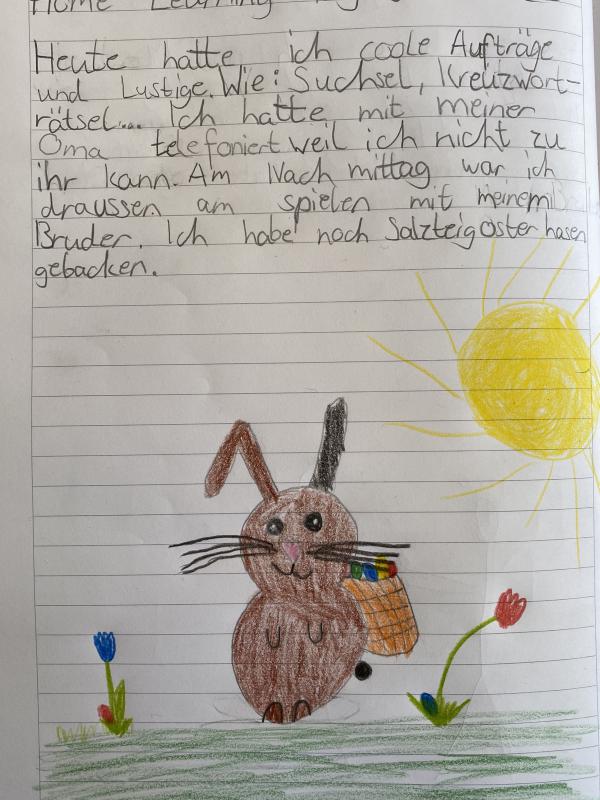 Home Learning
Heute hatte ich coole Aufträge
und Lustige. Wie: Suchsel, Kreuzwort-
rätsel.... Ich hatte mit meiner
Oma telefoniert weil ich nicht zu
ihr kann. Am Nach mittag war ich
draussen am spielen mit meinem
Bruder. Ich habe noch Salzteig oster hasen
gebacken.